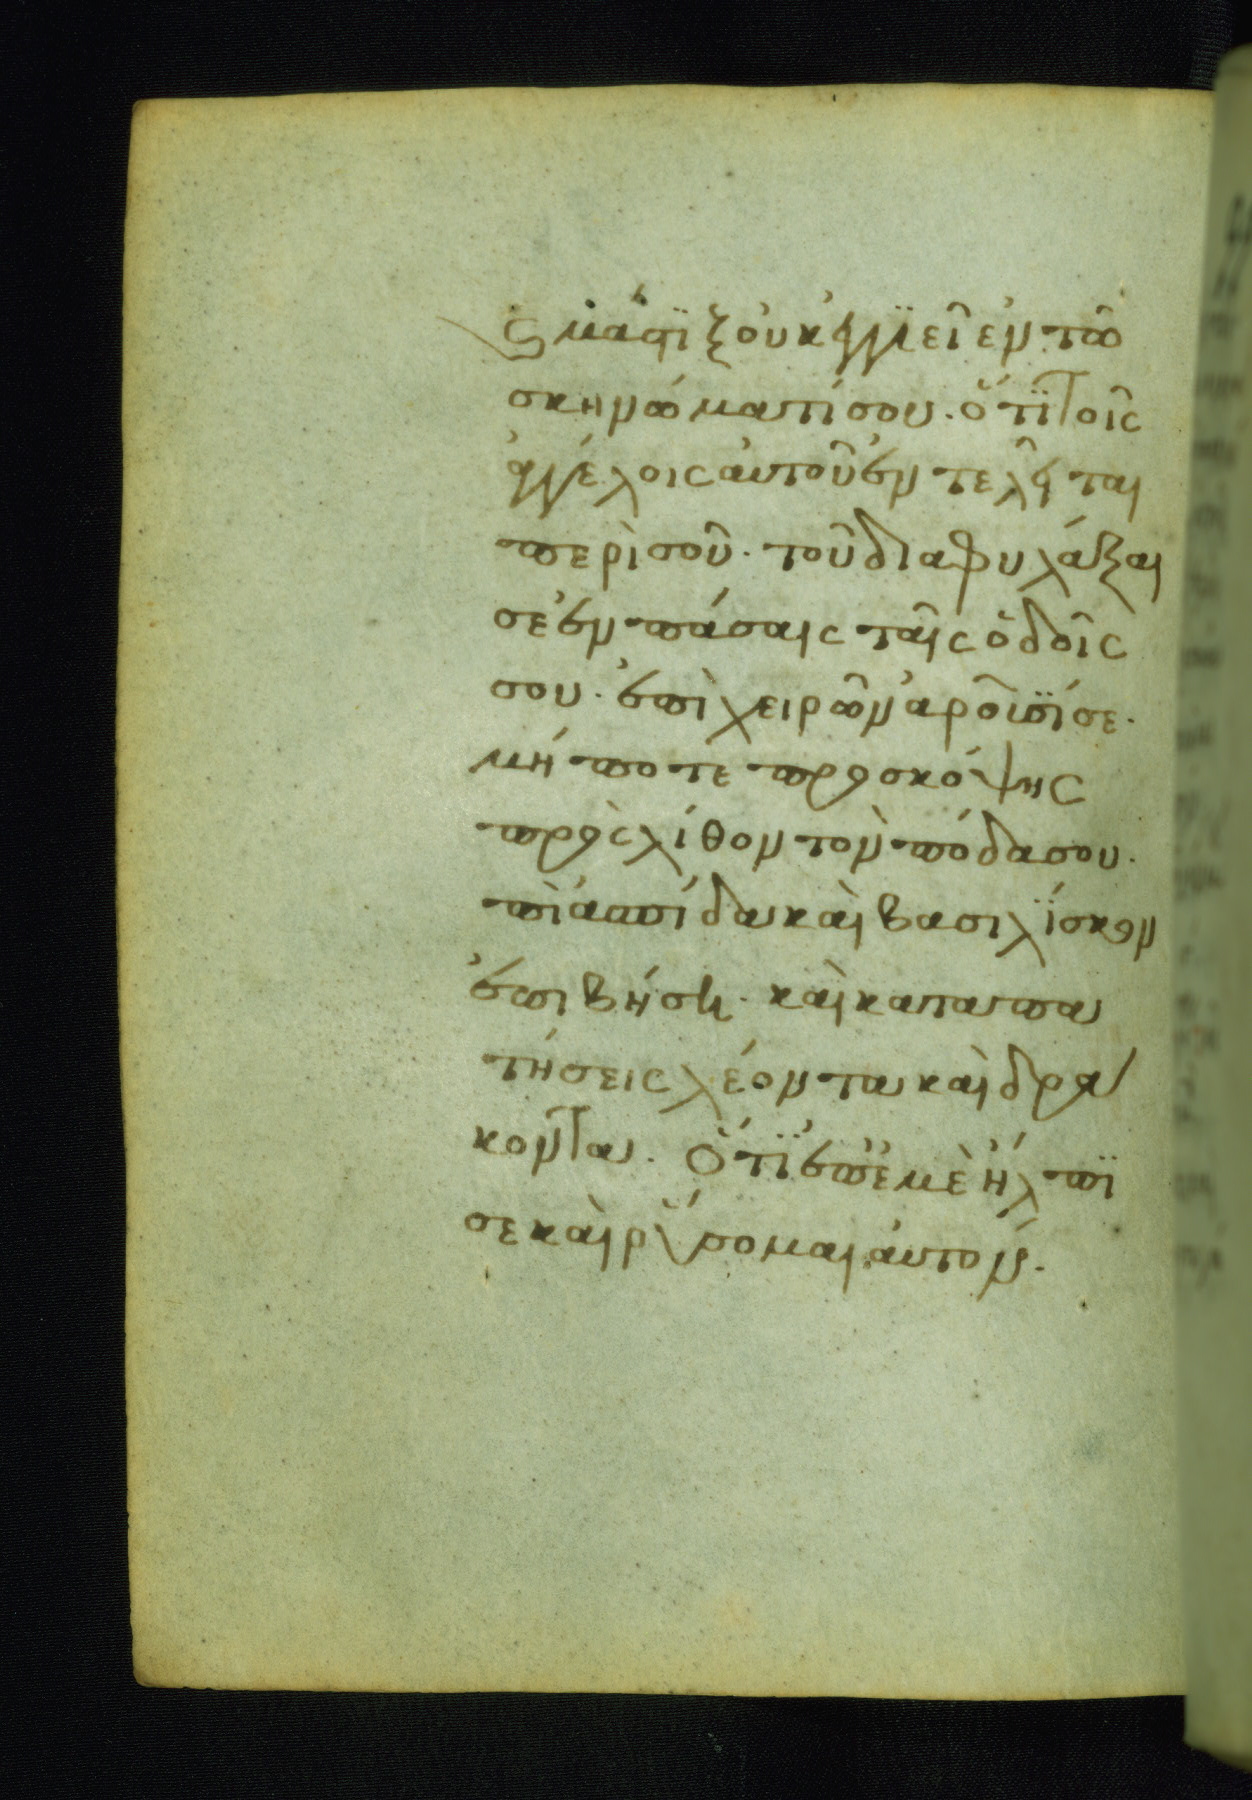 ϛ μάστϊξ οὐκ ἀγγϊεῖ ἐν τῶ
σκηνώματί σου· ὅτϊ τοῖς
ἀγγέλοις αὐτοῦ ἐντελεῖται
περὶ σοῦ· τοῦ διαφυλάξαι
σε ἐν πάσαις ταῖς ὁδοῖς
σου· ἐπὶ χειρῶν ἀροῦσϊ σε·
μήποτε προσκόψης
πρὸς λίθον τὸν πόδα σου·
πὶ ἀσπίδα καὶ βασιλΐσκον
ἐπιβήση· καὶ καταπα
τήσεις λέοντα καὶ δρά
κοντα· Ὅτϊ ἐπ' ἐμὲ ἤλπϊ
σε καὶ ῥύσομαι αὐτόν·